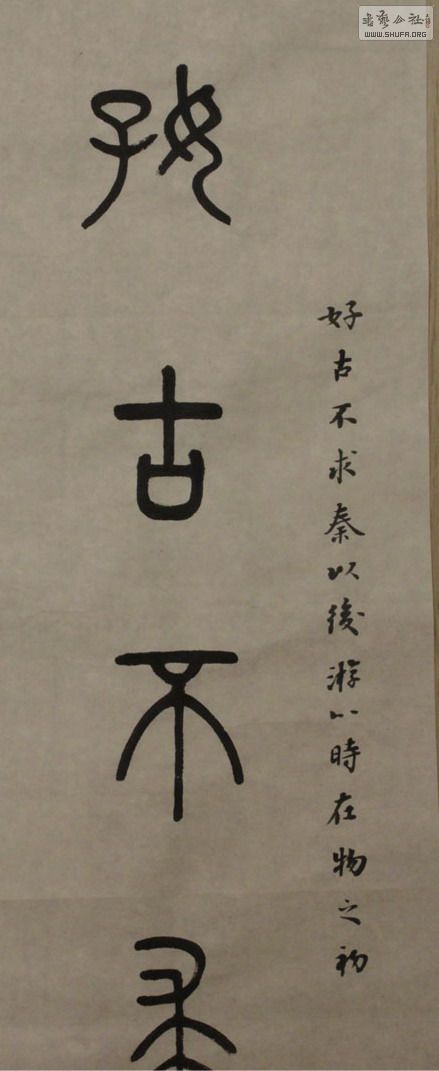 書藝公社
WWW.SHUFA.ORG
好古不求秦以後游心時在物之初
好古不求